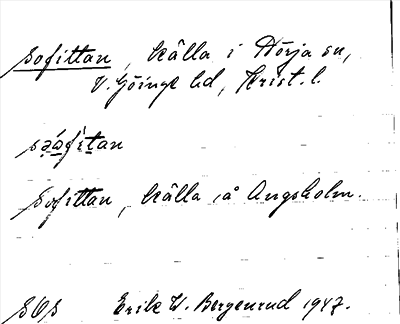 Sofittan, källa i Nörja sn,
V. Göinge hd, Krist. l.
sǫ́ǫfìtan
Sofittan, källa å Ängsholm.
SOS Erik W. Bergenrud 1947.